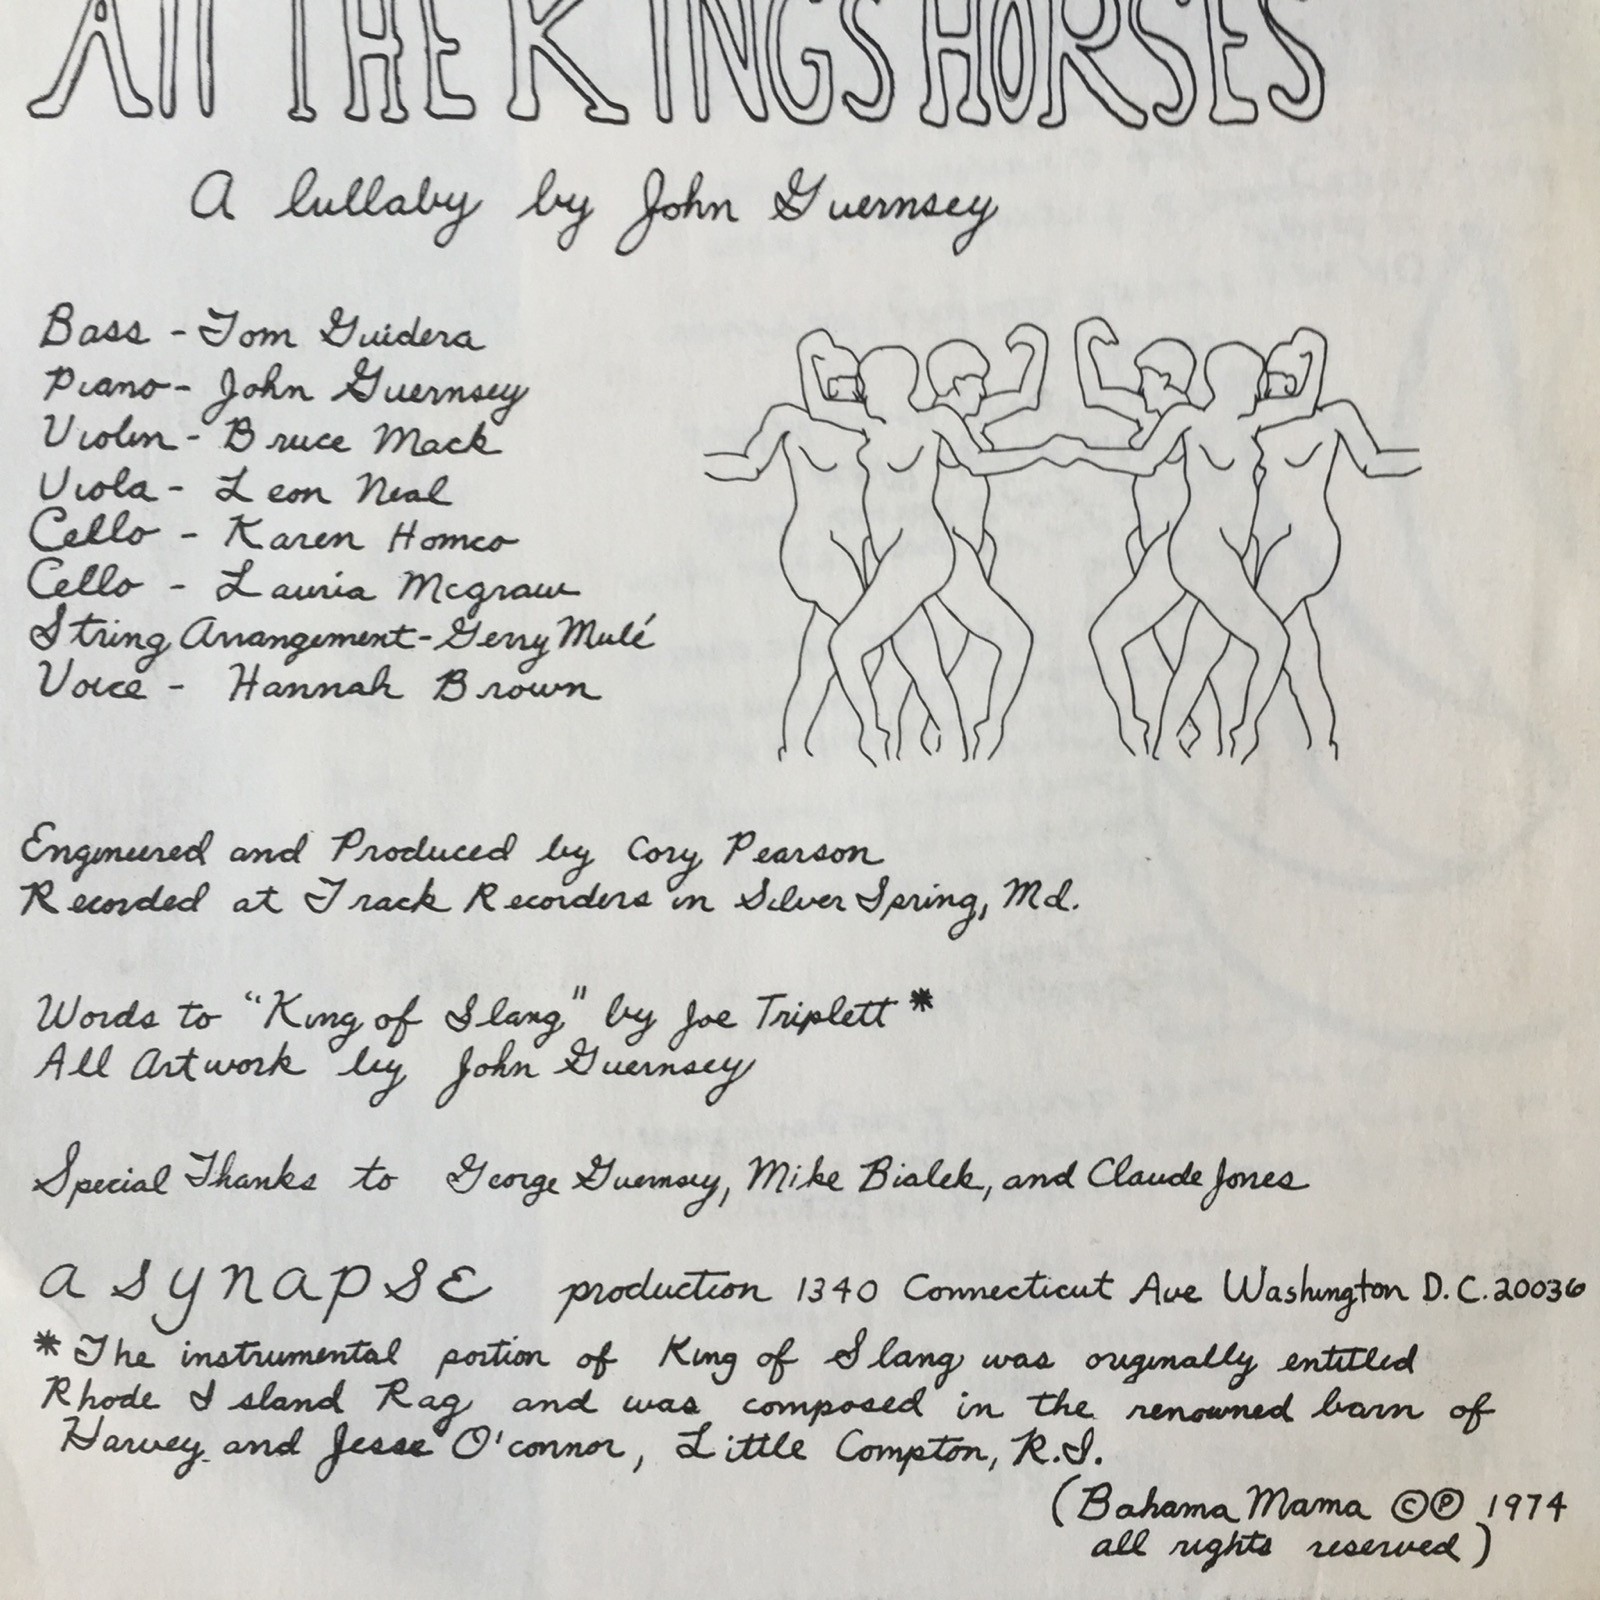 All THE KINGS HORSES
A lullaby by John Guernsey
Bass - Tom Guidera
Piano - John Guernsey
Violin - Bruce Mack
Viola - Leon Neal
Cello - Karen Homco
Cello - Lauria Mcgraw
String Arrangement - Gerry Mulé
Voice - Hannah Brown
Engineered and Produced by Cory Pearson
Recorded at Track Recorders in Silver Spring, Md.
Words to "King of Slang" by Joe Triplett *
All Artwork by John Guernsey
Special Thanks to George Guernsey, Mike Bialek, and Claude Jones
a SYNAPSE production 1340 Connecticut Ave Washington D.C. 20036
* The instrumental portion of King of Slang was originally entitled
Rhode Island Rag and was composed in the renowned barn of
Harvey and Jesse O'connor, Little Compton, R.I.
(Bahama Mama ©℗ 1974
all rights reserved)